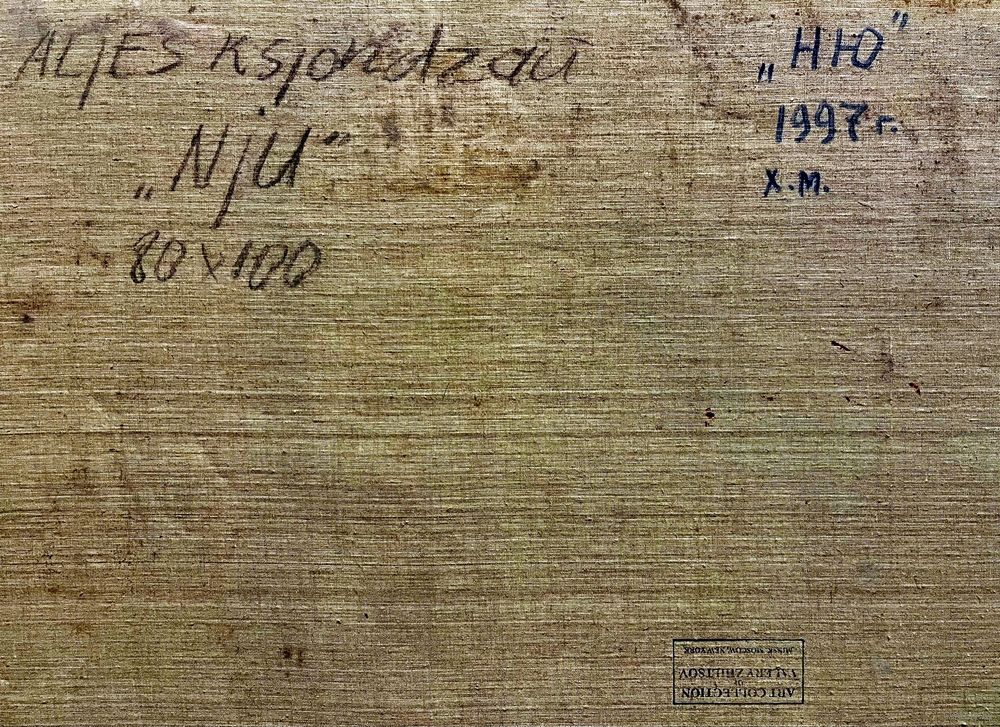 ALjES Ksjondzaŭ
„Nju"
80 x 100
„НЮ"
1997 г.
х.м.
ART COLLECTION
OF
VALERY ZHILTSOV
MINSK, MOSCOW, NEW YORK